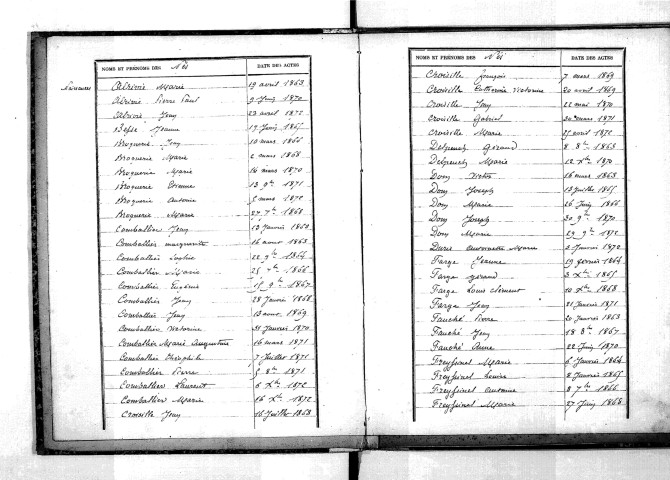 NOMS ET PRÉNOMS DES Nés DATE DES ACTES
Naissances Alrivie Marie 19 avril 1863
Alrivie Pierre Paul 9 Juin 1870
Alrivie Jean 23 avril 1872
Besse Jeanne 17 Juin 1865
Broquerie Jean 10 mars 1866
Broquerie Marie 2 mars 1868
Broquerie Marie 16 mars 1870
Broquerie Etienne 13 9bre 1871
Broquerie Antoine 5 mars 1872
Broquerie Marie 27 7bre 1868
Comballier Jean 13 Janvier 1863
Comballier marguerite 16 avril 1863
Comballier Sophie 22 9bre 1864
Comballier Marie 1866
Comballier Eugène 15 9bre 1867
Comballier Jean 28 Janvier 1868
Comballier Jean 13 avril 1869
Comballier Victorine 31 Janvier 1870
Comballier Marie Augustine 16 mars 1871
Comballier Théophile 7 Juillet 1871
Comballier Pierre 5 8bre 1871
Comballier Laurent 6 Xbre 1872
Comballier Marie 16 Xbre 1872
Croiville Jean 16 Juillet 1868
NOMS ET PRÉNOMS DES Nés DATE DES ACTES
Croiville françois 7 mars 1869
Croiville Catherine Victorine 20 avril 1869
Croiville Jean 22 mai 1870
Croiville Gabriel 30 mars 1871
Croiville Marie 25 avril 1872
Delpeuch Géraud 8 8bre 1863
Delpeuch Marie 12 Xbre 1870
Dom Victor 16 mars 1863
Dom Joseph 13 Juillet 1865
Dom Marie 26 Juin 1866
Dom Joseph 30 9bre 1870
Dom Marie 29 9bre 1872
Durie Antoinette Marie 3 Janvier 1872
Farge Jeanne 19 février 1864
Farge géraud 3 Xbre 1865
Farge Louis Clément 10 Xbre 1868
Farge Jean 21 Janvier 1871
Fauché Pierre 20 Janvier 1863
Fauché Jean 18 8bre 1867
Fauché Anne 22 Juin 1870
Freyssinet Marie 6 Janvier 1864
Freyssinet Louise 2 Janvier 1865
Freyssinet Antoine 8 7bre 1866
Freyssinet Marie 27 Juin 1868